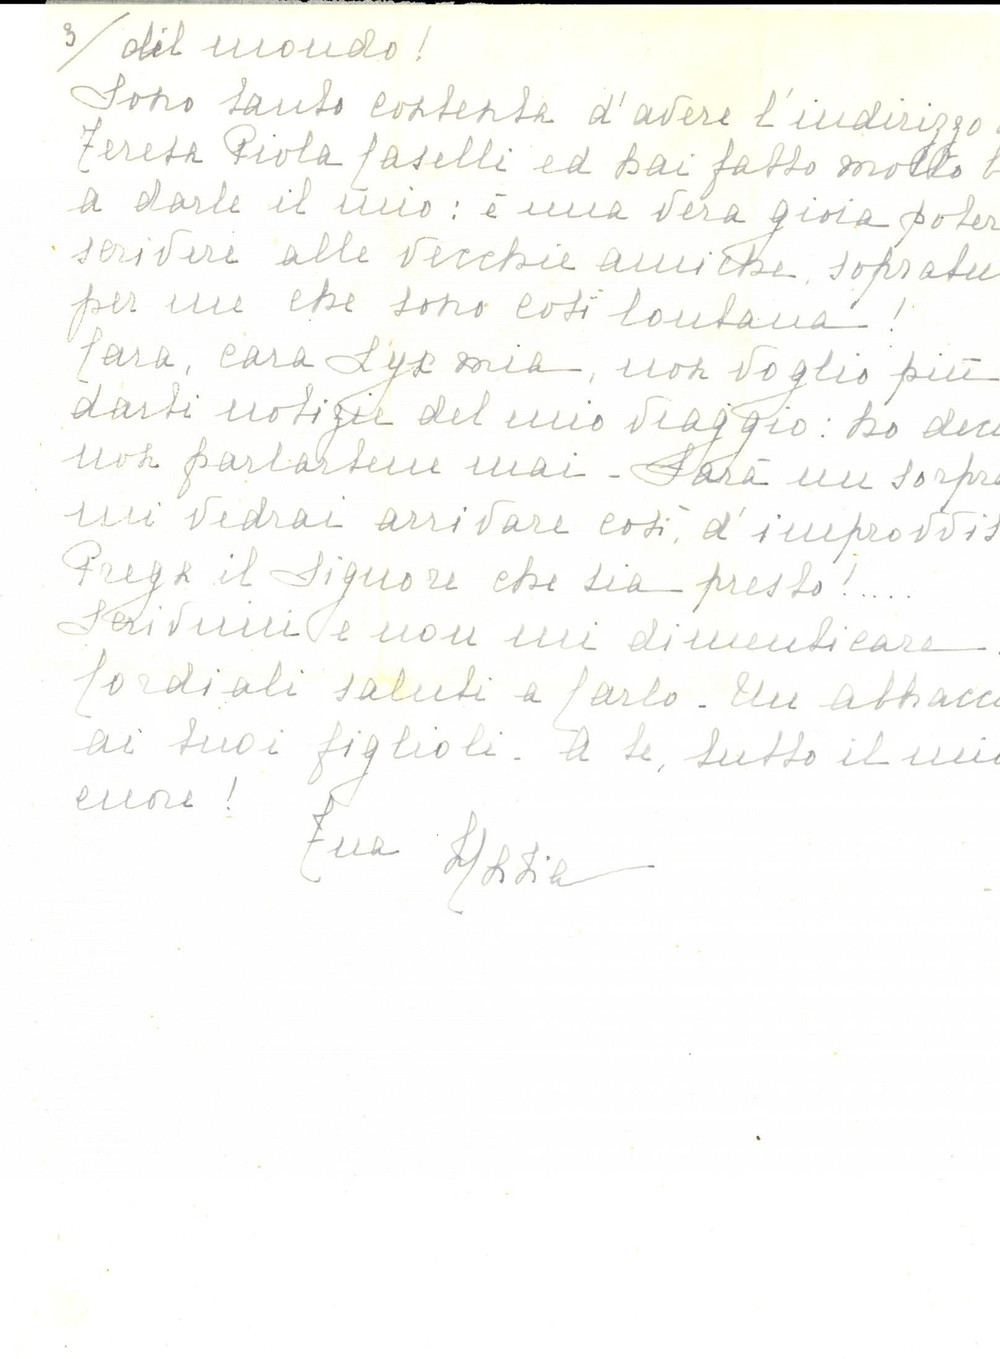 3/ del mondo!
Sono tanto contenta d'avere l'indirizzo
Teresa Piola Caselli ed hai fatto molto b
a darle il mio: è una vera gioia poter
scrivere alle vecchie amiche, sopratu
per me che sono così lontana!
Cara, cara Lyx mia, non voglio più
darti notizie del mio viaggio: ho deci
non parlartene mai - Sarà un sorpre
mi vedrai arrivare così, d'improvvis
Prega il Signore che sia presto!.....
Scrivimi e non mi dimenticare.
Cordiali saluti a Carlo - Un abbracci
ai tuoi figlioli - A te, tutto il mio
cuore!
Tua